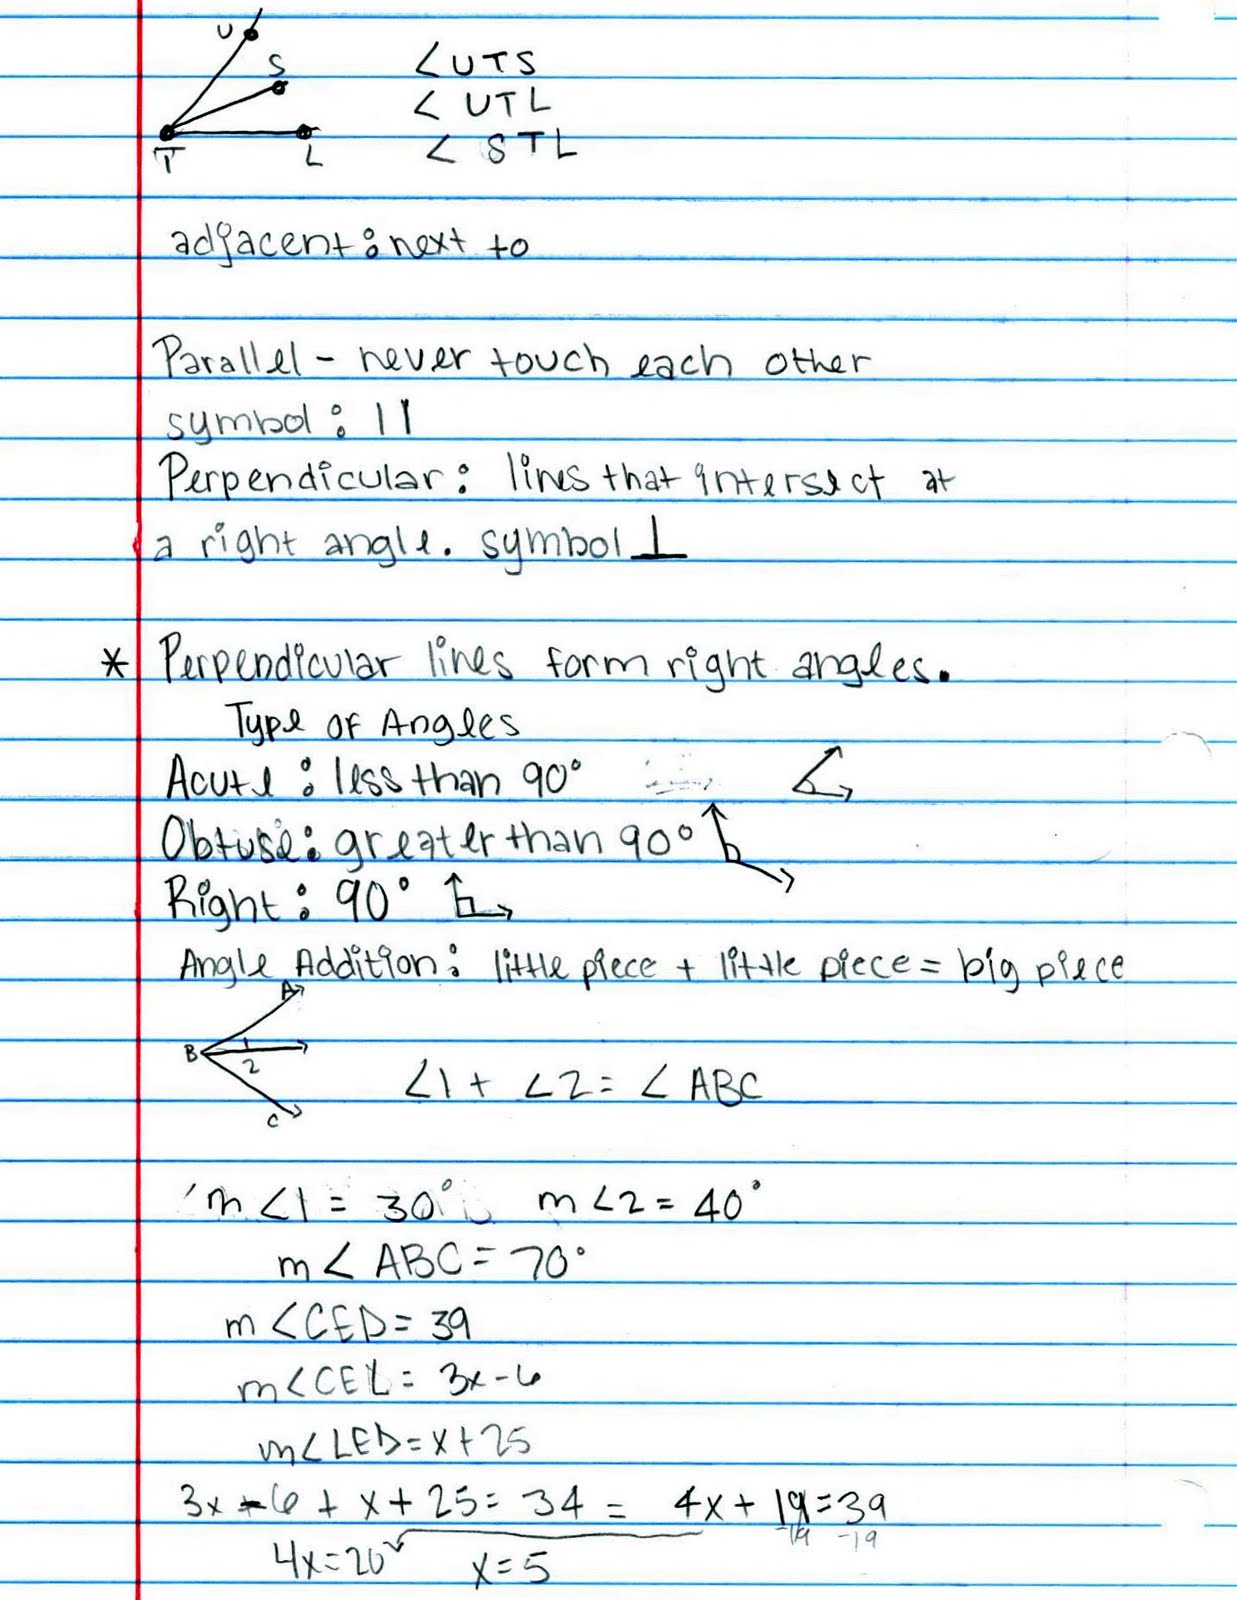 U
S
T
L
<UTS
<UTL
<STL
adjacent: next to
Parallel - never touch each other
symbol: ||
Perpendicular: lines that intersect at
a right angle. symbol ⊥
* Perpendicular lines form right angles.
Type of Angles
Acute: less than 90°
Obtuse: greater than 90°
Right: 90°
Angle Addition: little piece + little piece = big piece
A
B
1
2
C
∠1 + ∠2 = ∠ABC
m∠1 = 30° m∠2 = 40°
m∠ABC = 70°
m<CED = 39
m<CEL = 3x-6
m<LED = x+25
3x-6 + x+25 = 34 = 4x + 19 = 39
-19 -19
4x=20 x=5